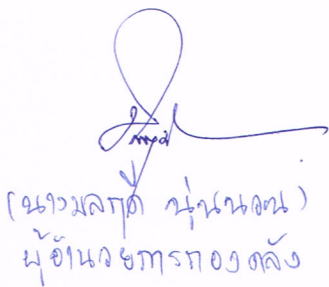 (นางมลฤดี นุ่นนวน)
ผู้อำนวยการกองคลัง